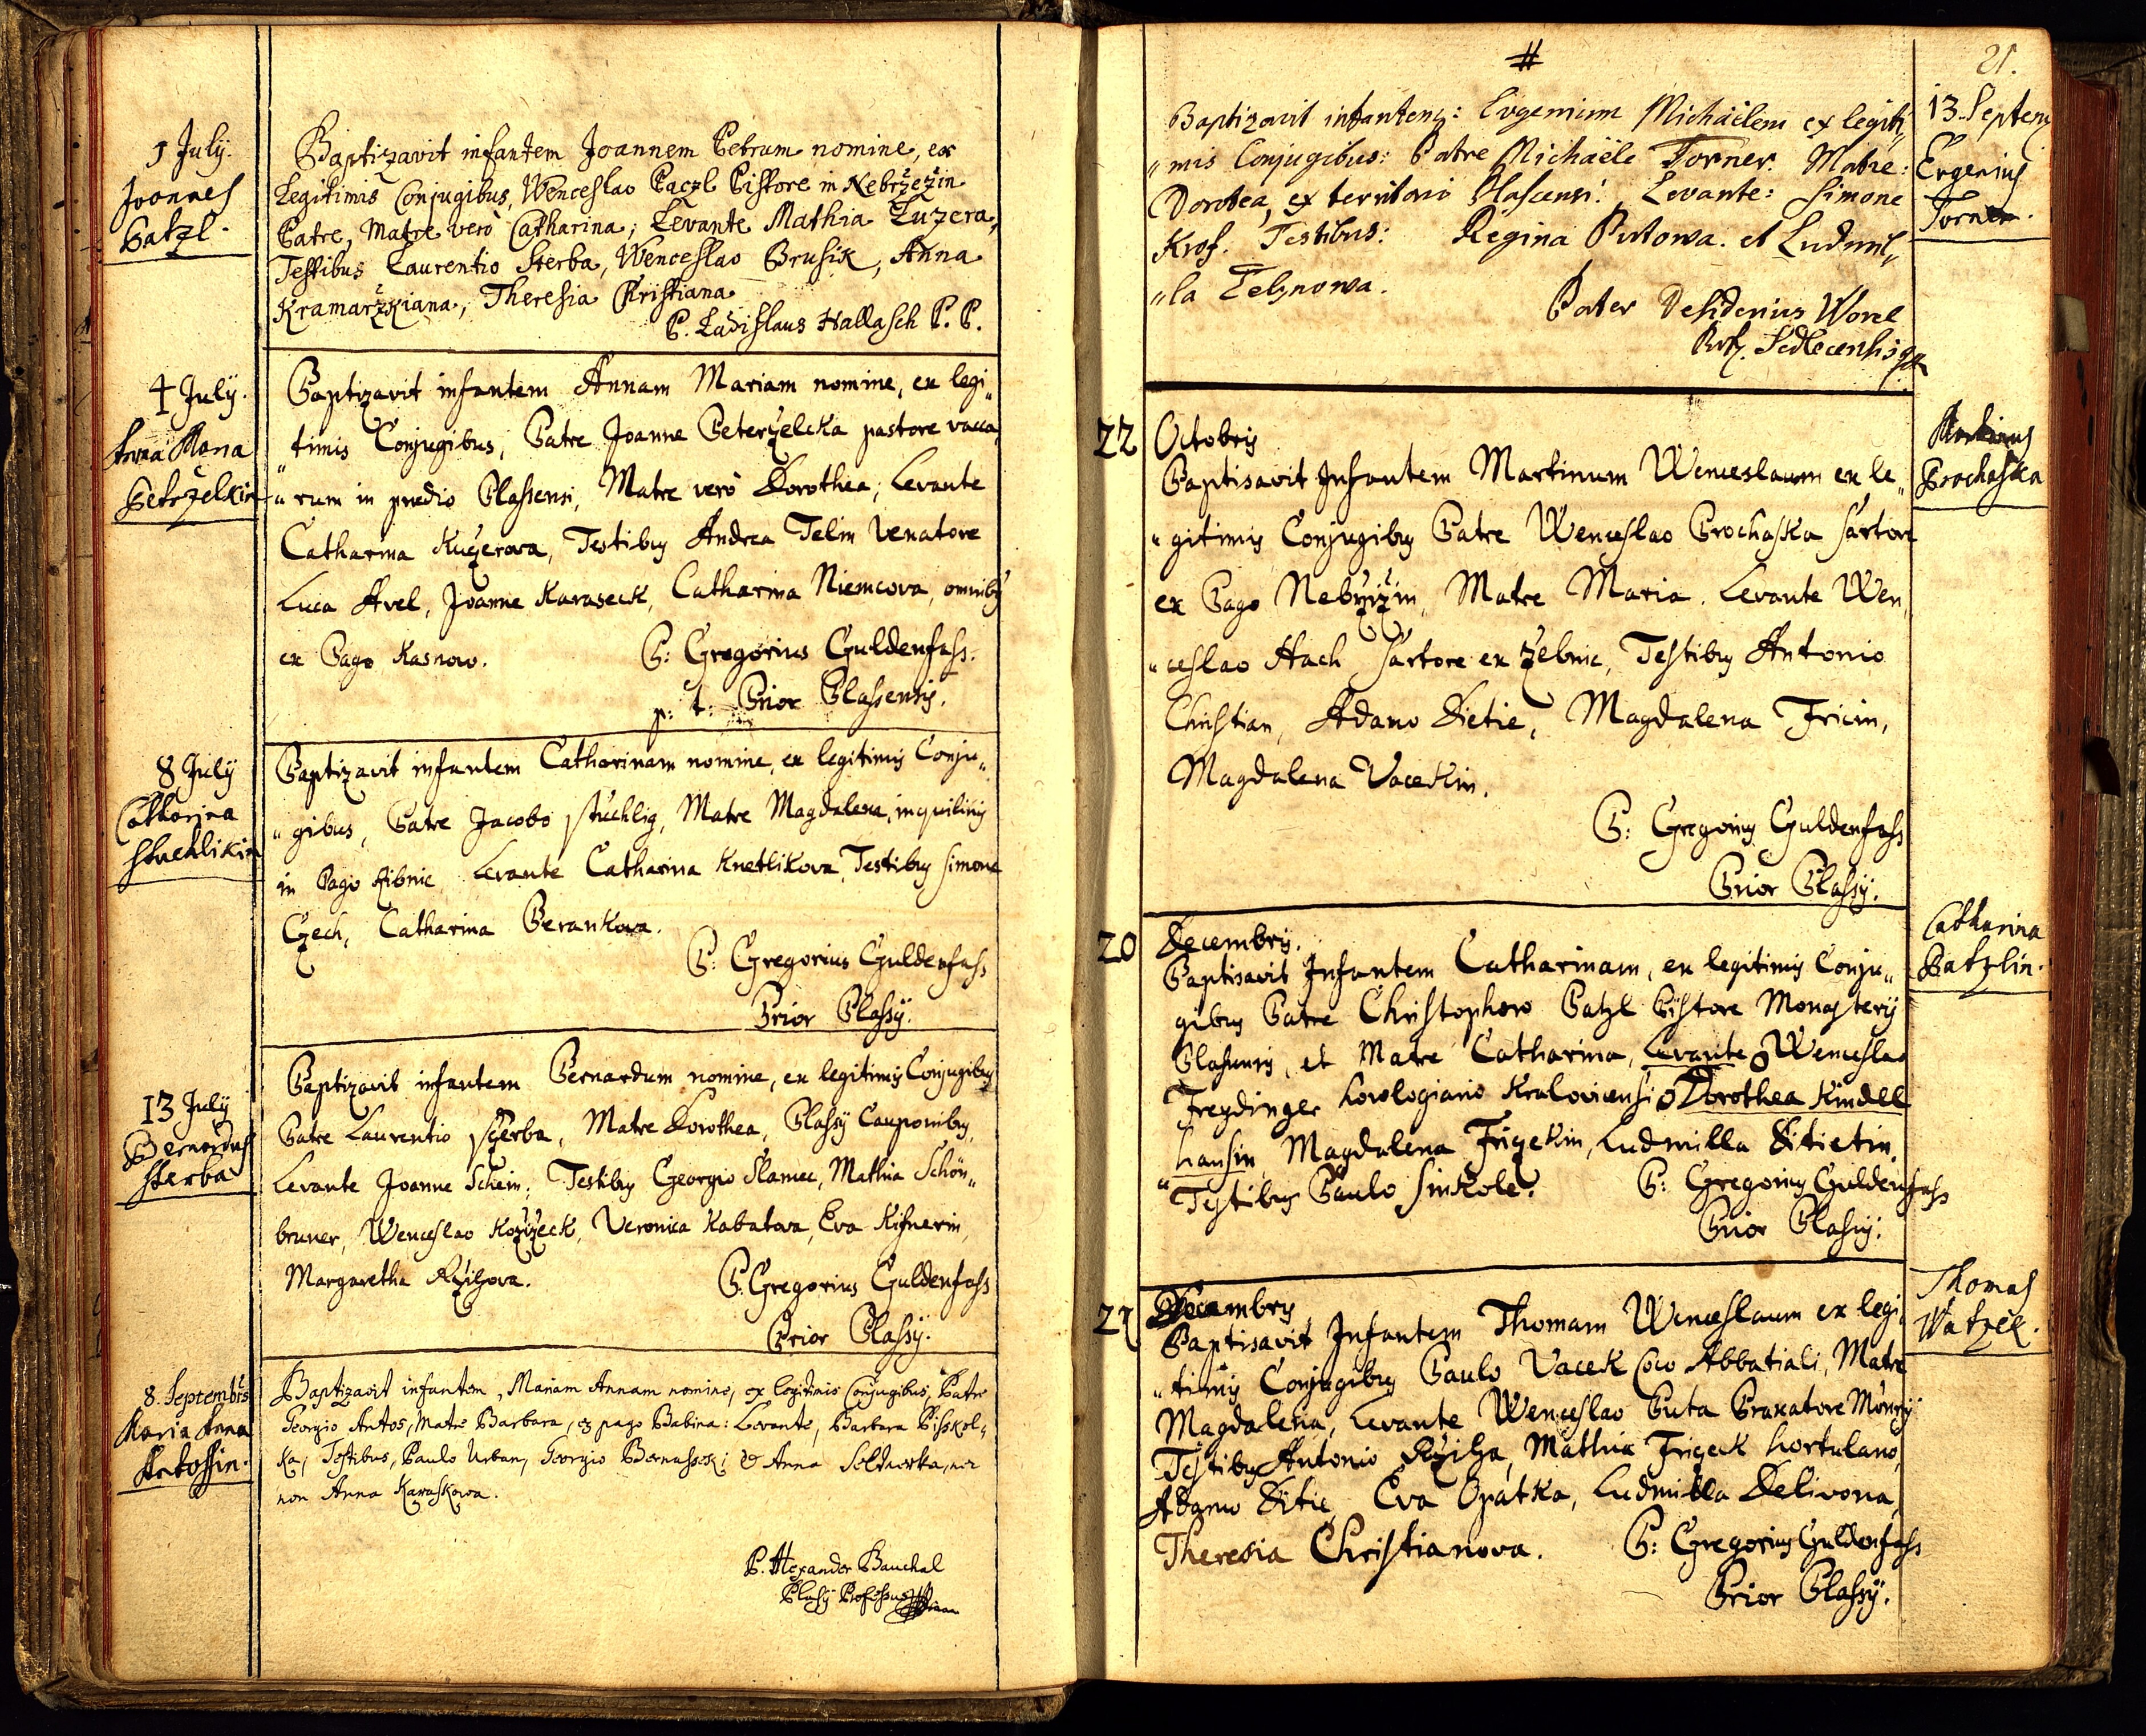 1 July.
Joannes
Patzl.
Baptizavit infantem Joannem Petrum nomine, ex
Legitimis Conjugibus, Wenceslao Paczl Pistore in Nebržežin
Patre, Matre verò Catharina; Levante Mathia Luzera,
Testibus Laurentio Sterba, Wenceslao Brusik, Anna
Kramaržkiana, Theresia Kristiana
P. Ladislaus Hallasch P. P.
4 July.
Anna Maria
Petrželkin
Baptizavit infantem Annam Mariam nomine, ex legi„
„timis Conjugibus, Patre Joanne Peterzelcka pastore vacca„
„rum in prædio Plassensi, Matre verò Dorothea, Levante
Catharina Kuczerova, Testibus Andrea Telin Venatore
Luca Avel, Joanne Karaseck, Catharina Niemcova, omnibus
ex Pago Kasnow.
P: Gregorius Guldenfass.
p: t: Prior Plassensis.
8 July
Catharina
stuchlikin
Baptizavit infantem Catharinam nomine, ex legitimis Conju„
„gibus, Patre Jacobo stuchlig, Matre Magdalena, inquilinis
in Pago Ribnic Levante Catharina Knetlikova, Testibus Simone
Czech, Catharina Berankova.
P: Gregorius Guldenfass
Prior Plassÿ.
13 July
Bernardus
sterba
Baptizavit infantem Bernardum nomine, ex legitimis Conjugibus
Patre Laurentio sczerba, Matre Dorothea, Plassÿ Cauponibus,
Levante Joanne Schein; Testibus Georgio Slamec, Mathia Schön„
bruner, Wenceslao Kožižeck, Veronica Kabatova, Eva Kisnerin,
Margaretha Rzihova.
P: Gregorius Guldenfass
Prior Plassÿ.
8. Septembris
Maria Anna
Antossin.
Baptizavit infantem, Mariam Annam nomine, ex legitimis Conjugibus, Patre
Georgio Antos, Matre Barbara, ex pago Babina: Levante, Barbara Pisskol„
ka, Testibus, Paulo Urban, Georgio Bernassek; & Anna Soldnerka, nec
non Anna Karaskowa.
P. Alexander Bauchal
Plassÿ Professus
#
21.
13. Septemb
Eugenius
Torner.
Baptizavit infantem: Eugenium Michäelem ex legiti„
„mis Conjugibus: Patre Michaële Torner. Matre:
Dorotea, ex territorio Plascensi. Levante: Simone
Krof. Testibus: Regina Putowa. et Ludmil„
„la Telznowa.
Pater Desiderius Worel
Prof. Sedlecensis
22 Octobris
Martinus
Prochaska
Baptisavit Infantem Martinum Wenceslaum ex le„
„gitimis Conjugibus Patre Wenceslao Prochaska sartore
ex Pago Nebržižin, Matre Maria. Levante Wen„
„ceslao Hach sartore ex Zebnic, Testibus Antonio
Christian, Adamo Dietie, Magdalena Fricin,
Magdalena Vacekin.
P: Gregorius Guldenfass
Prior Plassÿ.
20 Decembris.
Catharina
Patzlin.
Baptisavit Infantem Catharinam, ex legitimis Conju„
gibus Patre Christophoro Patzl Pistore Monasterÿ
Plassensis, et Matre Catharina, Levante Wenceslao
Freydinger horologiario Kralovicensi Dorothea Kindell
„hansin Magdalena Frizekin, Ludmilla Ditietin.
Testibus Paulo Sinkole.
P: Gregorius Guldenfass
Prior Plassÿ.
21 Decembris
Thomas
Watzek.
Baptisavit Infantem Thomam Wenceslaum ex legi„
„timis Conjugibus Paulo Vacek Coco Abbatiali, Matre
Magdalena, Levante Wenceslao Puta Braxatore
Testibus Antonio Rziha, Mathia Frizeck hortulano,
Adamo Ditie, Eva Opatka, Ludmilla Delivona,
Theresia Christianova.
P: Gregorius Guldenfass
Prior Plassÿ.